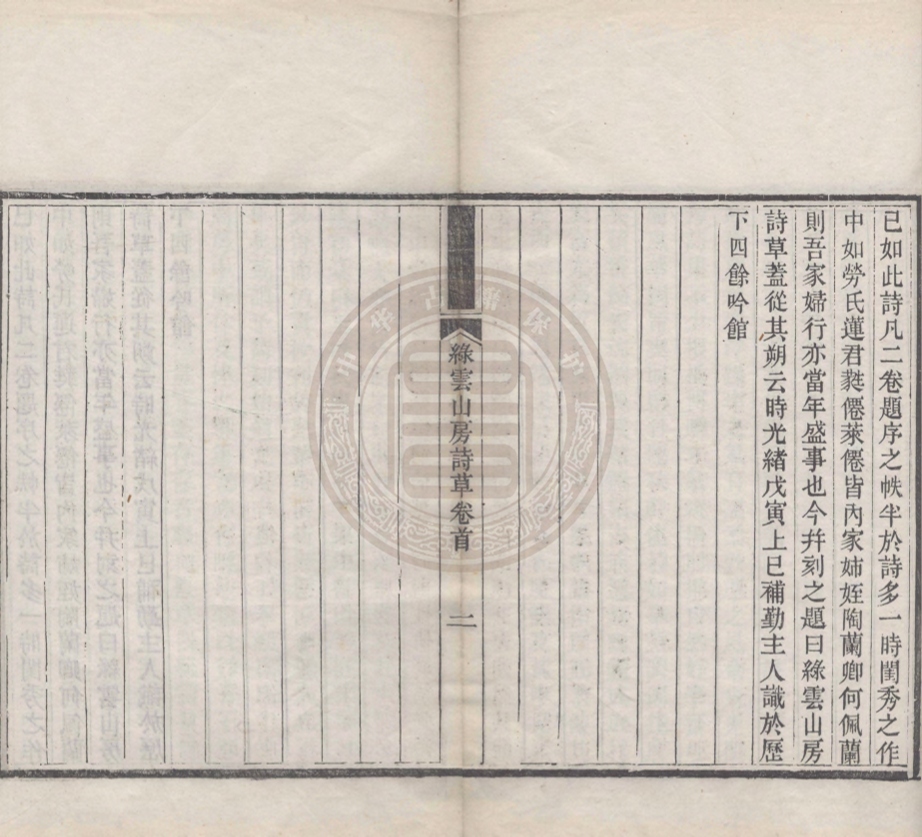 已如此詩凡二卷題序之帙半於詩多一時閨秀之作
中如勞氏蓮君蕤僊萊僊皆內家姉姪陶蘭卿何佩蘭
則吾家婦行亦當年盛事也今幷刻之題曰綠雲山房
詩草蓋從其朔云時光緒戊寅上巳補勤主人識於歷
下四餘吟館
綠雲山房詩草卷首
二